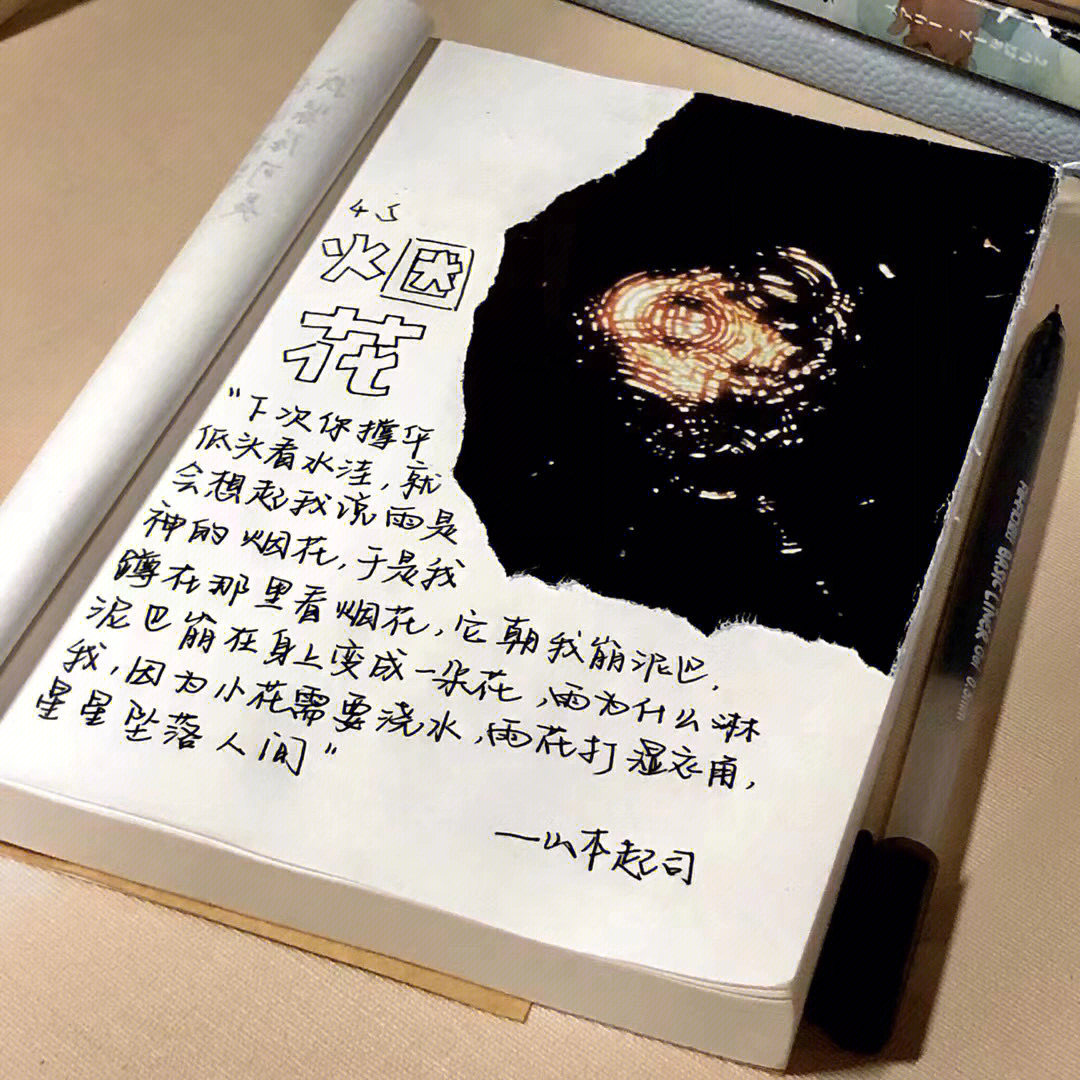 45
烟
花
“下次你撑伞
低头看水洼，就
会想起我说雨是
神的烟花，于是我
蹲在那里看烟花，它朝我崩泥巴，
泥巴崩在身上变成一朵花，雨为什么淋
我，因为小花需要浇水，雨花打湿衣角，
星星坠落人间”
—山本起司
BASIC LINER Gel 0.5mm